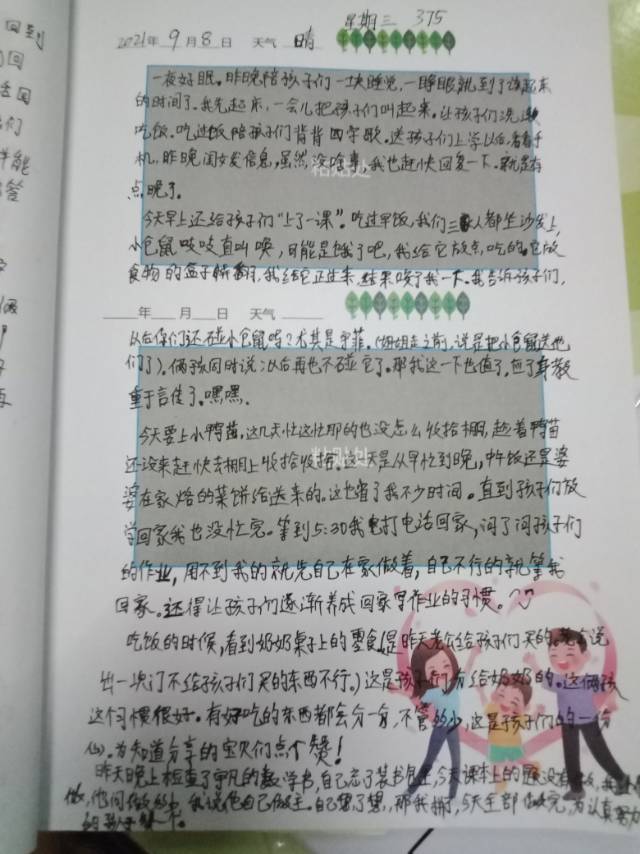 回到
星期三 375
2021年9月8日 天气 晴
一夜好眠。昨晚陪孩子们一块睡觉,一睁眼就到了该起床
的时间了。我先起床,一会儿把孩子们叫起来。让孩子们洗漱
吃饭。吃过饭陪孩子们背背四字歌。送孩子们上学以后,看看手
机,昨晚闺女发信息,虽然没啥事,我也赶快回复一下。就是有
点晚了。
粘贴处
今天早上还给孩子们“上了一课”。吃过早饭,我们三人都坐沙发上,
小仓鼠吱吱直叫唤,可能是饿了吧,我给它放点吃的。它放
食物的盒子翻了,我给它正过来,结果咬了我一下。我告诉孩子们,
年 月 日 天气
以后你们还碰小仓鼠吗?尤其是宇菲(姐姐走之前,说是把小仓鼠送他
们了)。俩孩同时说:以后再也不碰它了。那我这一下也值了。应了身教
重于言传了。嘿嘿。
今天要上小鸭苗,这几天忙这忙那的也没怎么收拾棚,趁着鸭苗
还没来赶快去棚上收拾收拾。这一天是从早忙到晚,中午饭还是婆
粘贴处
婆在家烙的菜饼给送来的。这也省了我不少时间。直到孩子们放
学回家我也没忙完。等到5:30我打电话回家,问了问孩子们
的作业,用不到我的就先自己在家做着,自己不行的就等我
回家。还得让孩子们逐渐养成回家写作业的习惯。
吃饭的时候,看到奶奶桌子上的零食(是昨天老公给孩子们买的,说
出一次门不给孩子们买的东西不行。)这是孩子们分给奶奶的。这俩孩
这个习惯很好。有好吃的东西都会分一分,不管多少,这是孩子们的一份
心。为知道分享的宝贝们点个赞!
昨天晚上检查了宇凡的数学书,自己忘了装书包里,今天课本上的题没有
做,他问做多少,我说他自己做主。自己想了想,那我,今天全部做完,为认真努力